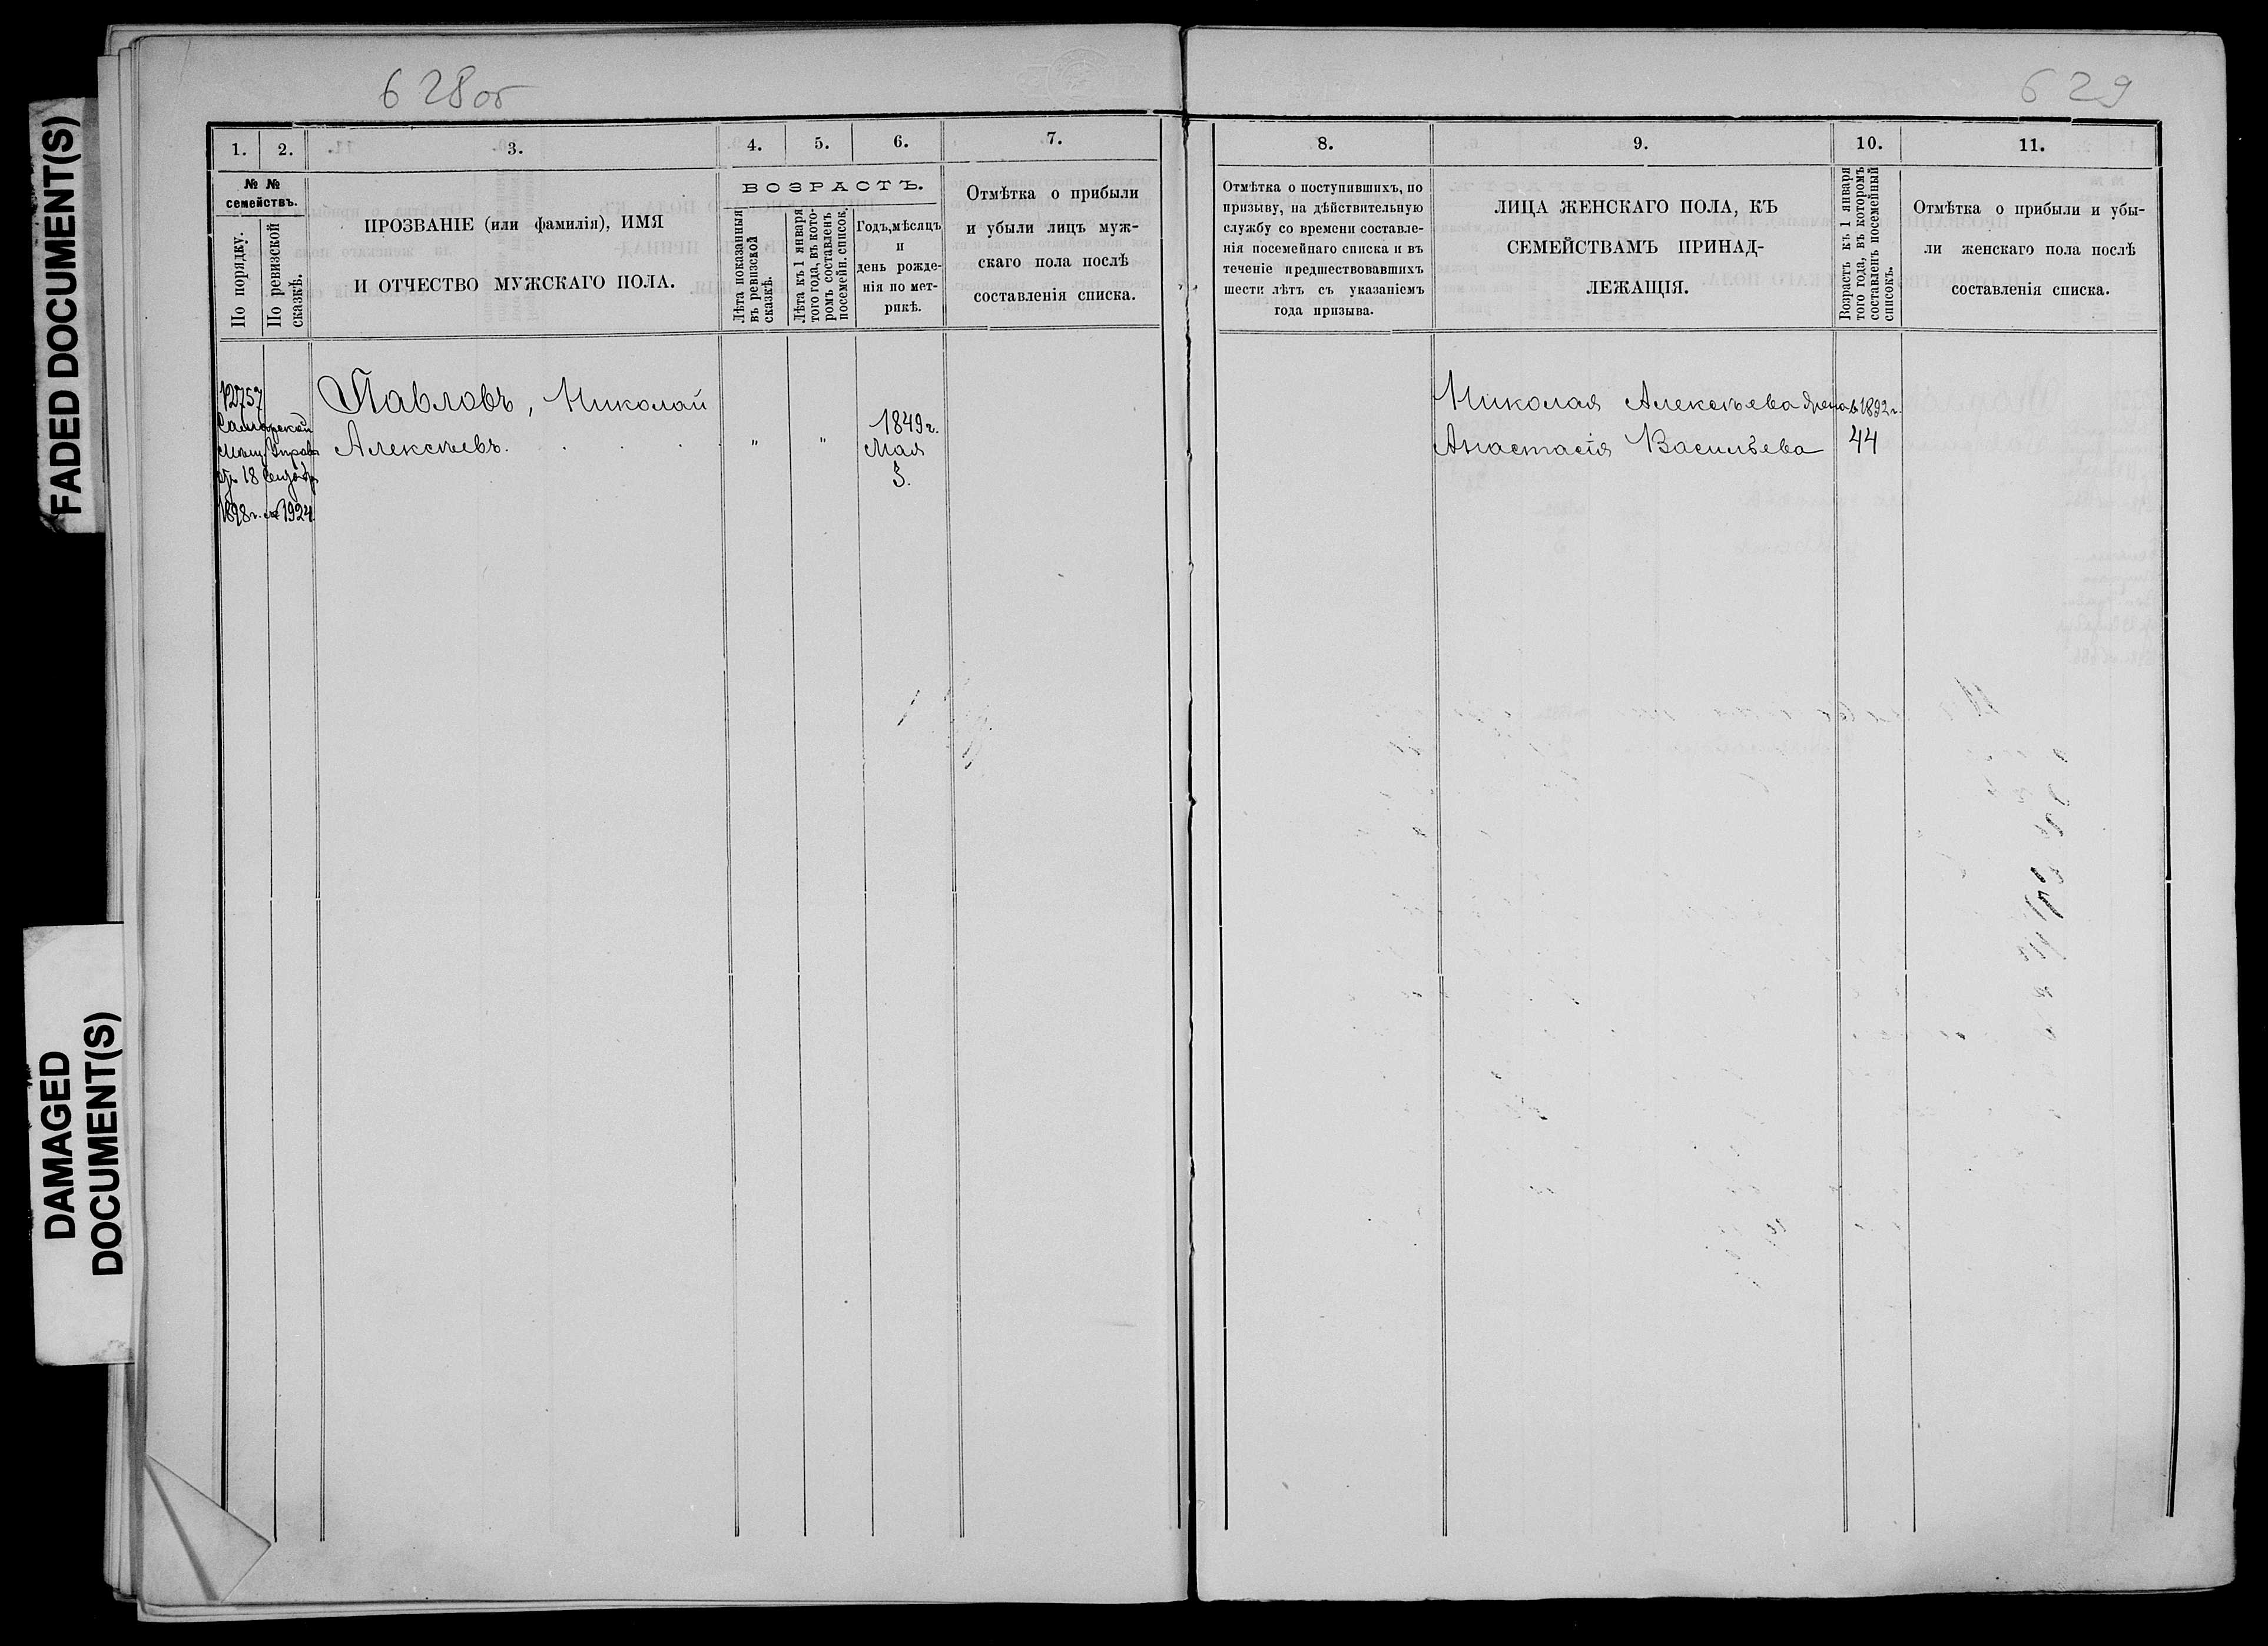 FADED DOCUMENT(S)
DAMAGED
DOCUMENT(S)
628об
1. 2. 3. 4. 5. 6. 7.
№ №
семействъ.
По порядку.
По ревизской
сказкѣ.
ПРОЗВАНІЕ (или фамилія), ИМЯ
И ОТЧЕСТВО МУЖСКАГО ПОЛА.
ВОЗРАСТЪ.
Лѣта показанныя
въ ревизской
сказкѣ.
Лѣта къ 1 января
того года, въ кото-
ромъ составленъ
посемейн. список.
Годъ, мѣсяцъ
и
день рожде-
нія по мет-
рикѣ.
Отмѣтка о прибыли
и убыли лицъ муж-
скаго пола послѣ
составленія списка.
12757
Самарской
Мѣщ. Управ
1898 г. № 1924
Павловъ, Николай
Алексѣевъ.
" "
1849 г.
Мая
3.
629
8. 9. 10. 11.
Отмѣтка о поступившихъ, по
призыву, на дѣйствительную
службу со времени составле-
нія посемейнаго списка и въ
теченіе предшествовавшихъ
шести лѣтъ съ указаніемъ
года призыва.
ЛИЦА ЖЕНСКАГО ПОЛА, КЪ
СЕМЕЙСТВАМЪ ПРИНАД-
ЛЕЖАЩІЯ.
Возрастъ къ 1 января
того года, въ которомъ
составленъ посемейный
списокъ.
Отмѣтка о прибыли и убы-
ли женскаго пола послѣ
составленія списка.
Николая Алексѣева жена в 1892 г.
Анастасія Васильева 44